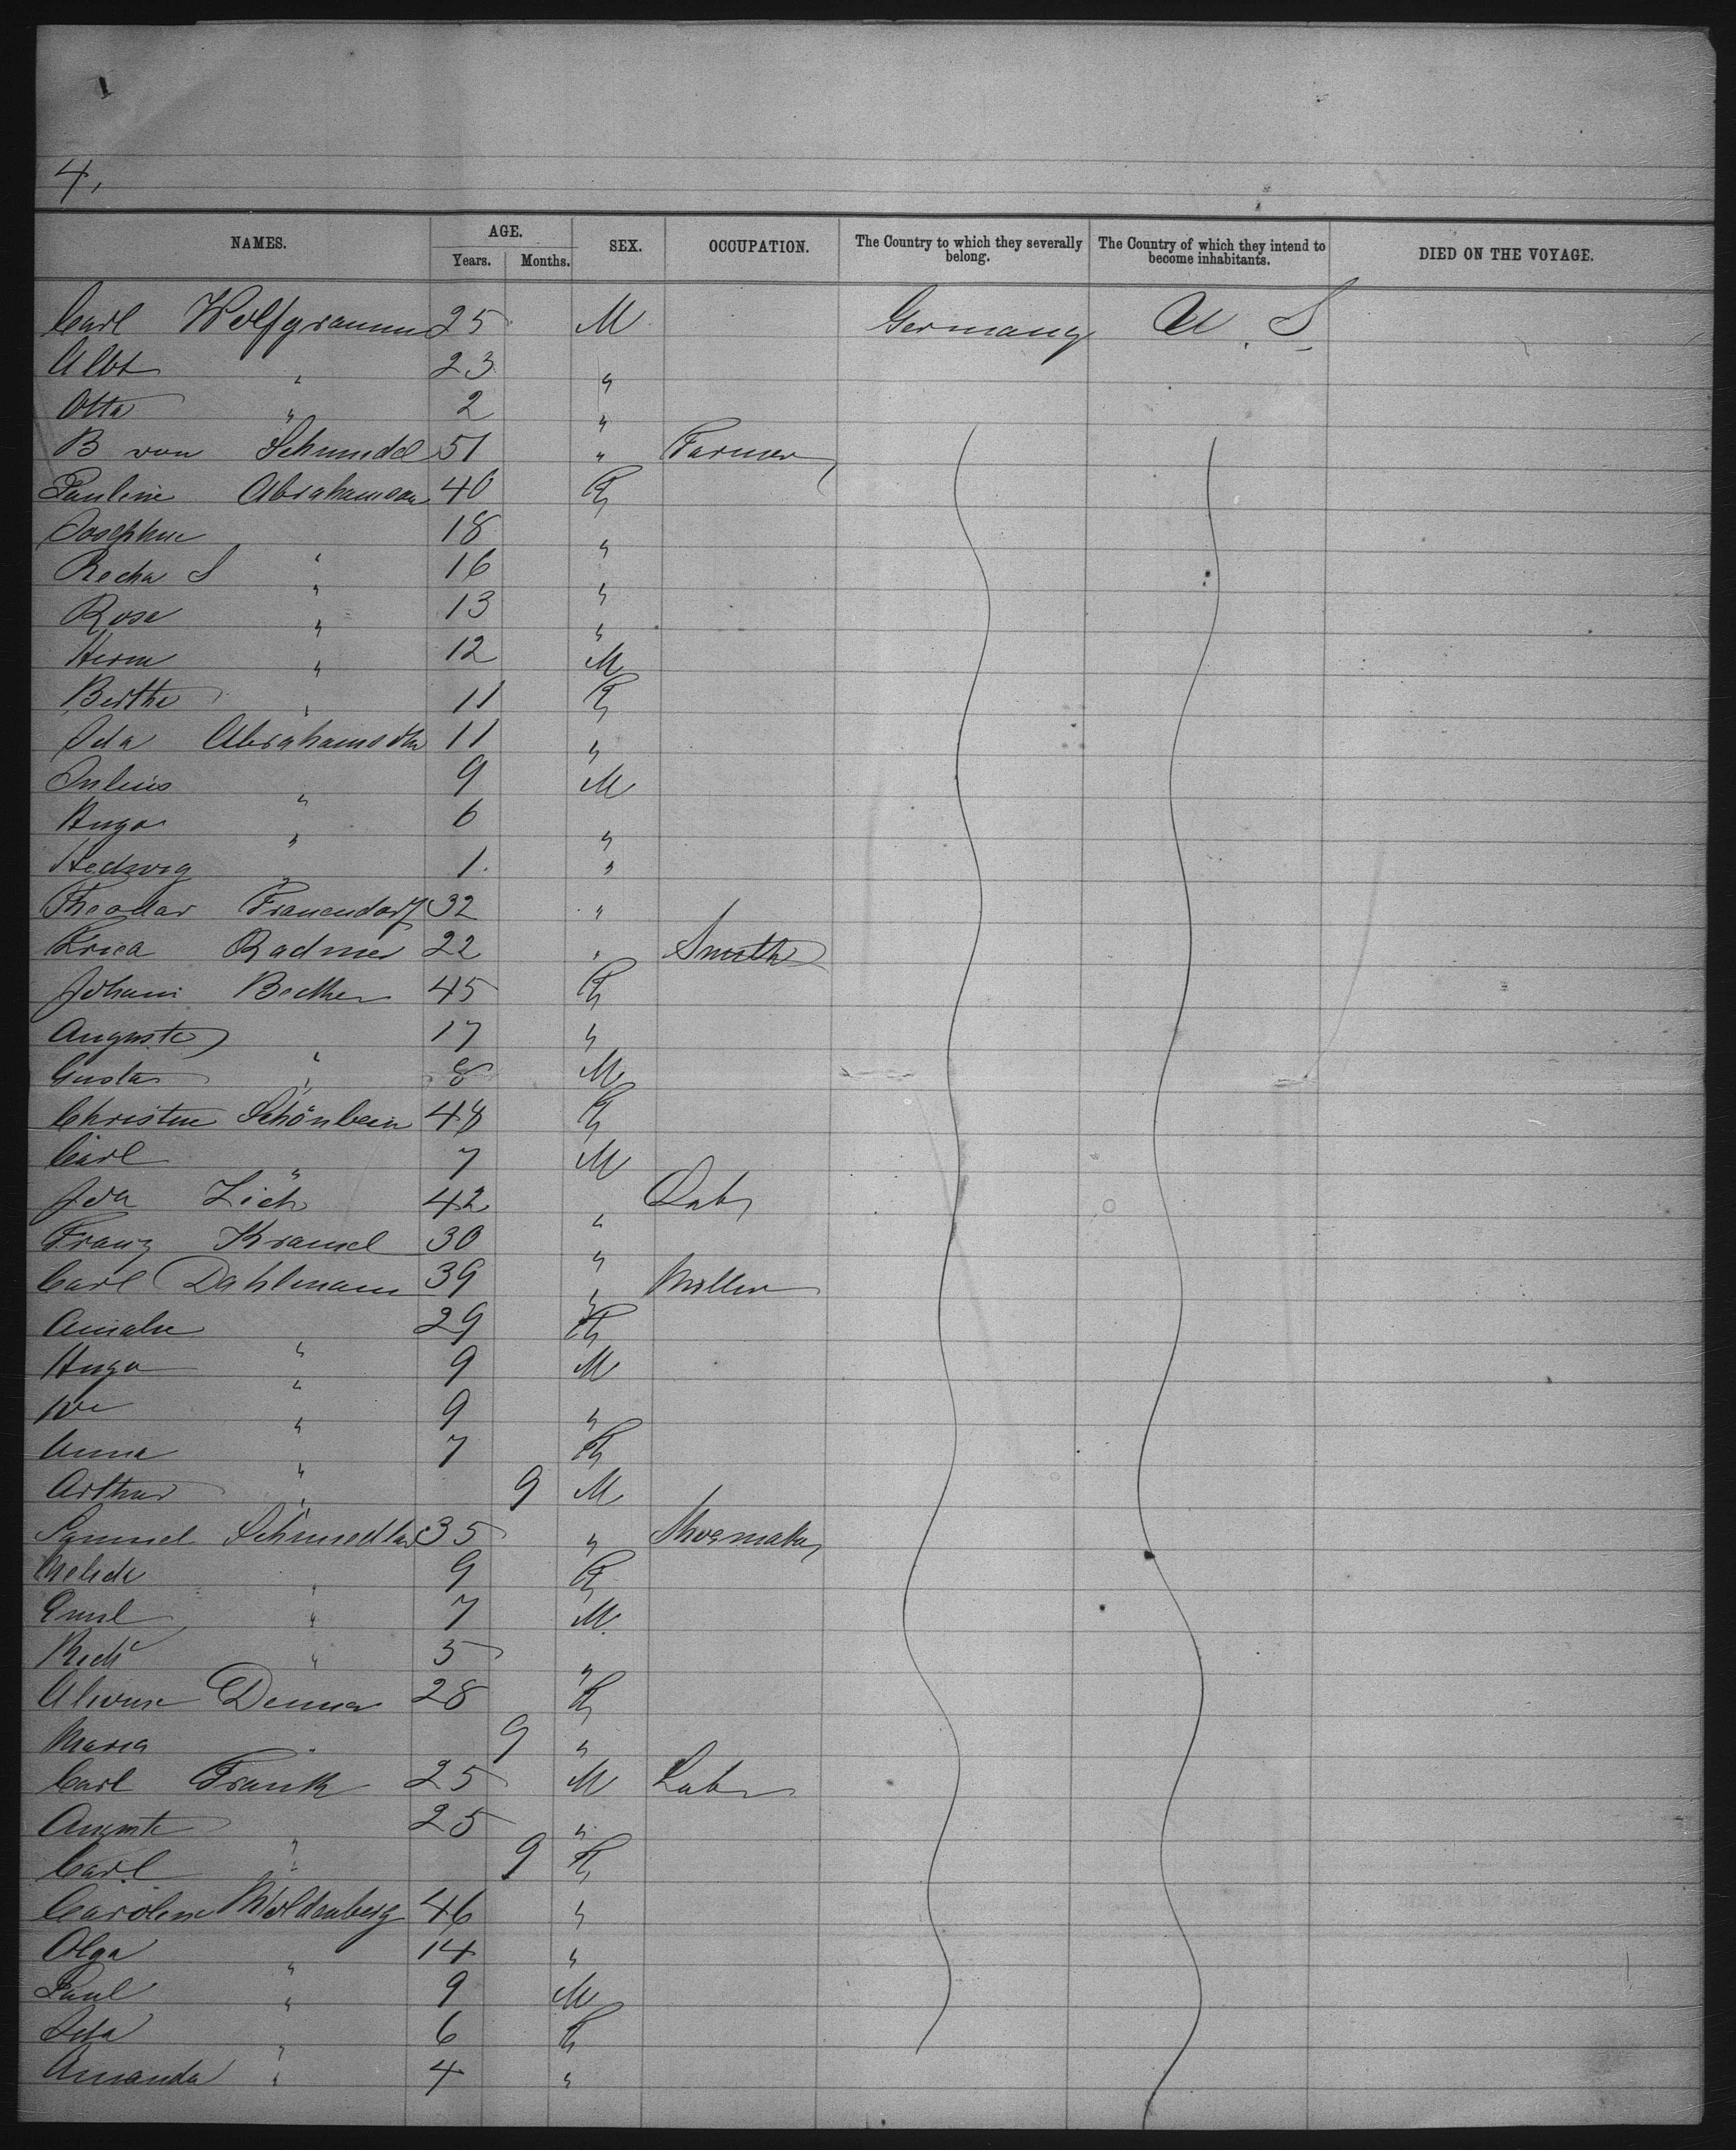 4.
NAMES. AGE. SEX. OCCUPATION. The Country to which they severally belong. The Country of which they intend to become inhabitants. DIED ON THE VOYAGE.
Years. Months.
Carl Wolfgramm 25 M Germany U. S.
Albt " 23 "
Otto " 2 "
B von Schmidel 51 " Farmer
Pauline Abrahamson 40 F
Josephine " 18 "
Recha S " 16 "
Rosa " 13 "
Herm " 12 M
Berthe " 11 F
Ida Abrahamson 11 "
Julius " 9 M
Hugo " 6 "
Hedwig " 1 "
Theodor Frauendorf 32 "
Radmer 22 " Smith
Johann Becker 45 F
Auguste " 17 "
Gustav " 8 M
Christine Schönbein 48 F
Carl " 7 M
Lich 42 " Lab
Franz Kramel 30 "
Carl Dahlmann 39 " Miller
Amalie " 29 F
Hugo " 9 M
" 9 "
Anna " 7 F
Arthur " 9 M
Samuel 35 " Shoemaker
" 9 F
Emil " 7 M
Richd " 5 "
Alwine 28 F
Maria " 9 "
Carl Frank 25 M Labr
Auguste " 25 "
Carl " 9 F
Caroline Woldenberg 46 "
Olga " 14 "
Paul " 9 M
Ida " 6 F
Amanda " 4 "